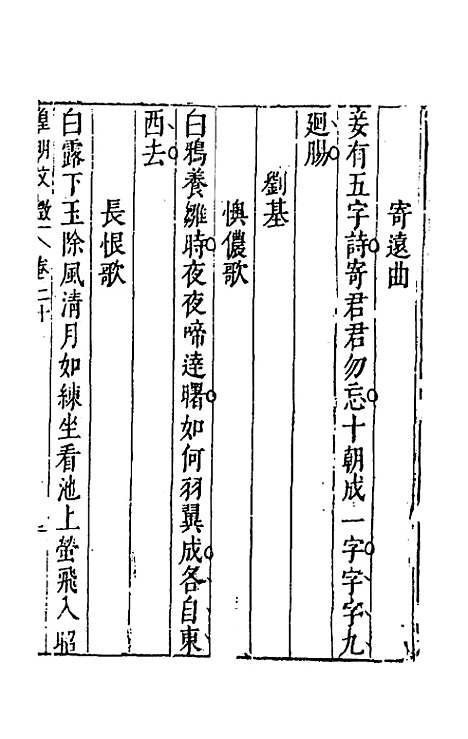 寄遠曲
妾有五字詩寄君君勿忘十朝成一字字字九
廻腸
劉基
懊儂歌
白鴉養雛時夜夜啼達曙如何羽翼成各自東
西去
長恨歌
白露下玉除風清月如練坐看池上螢飛入昭
皇明文徵卷二十